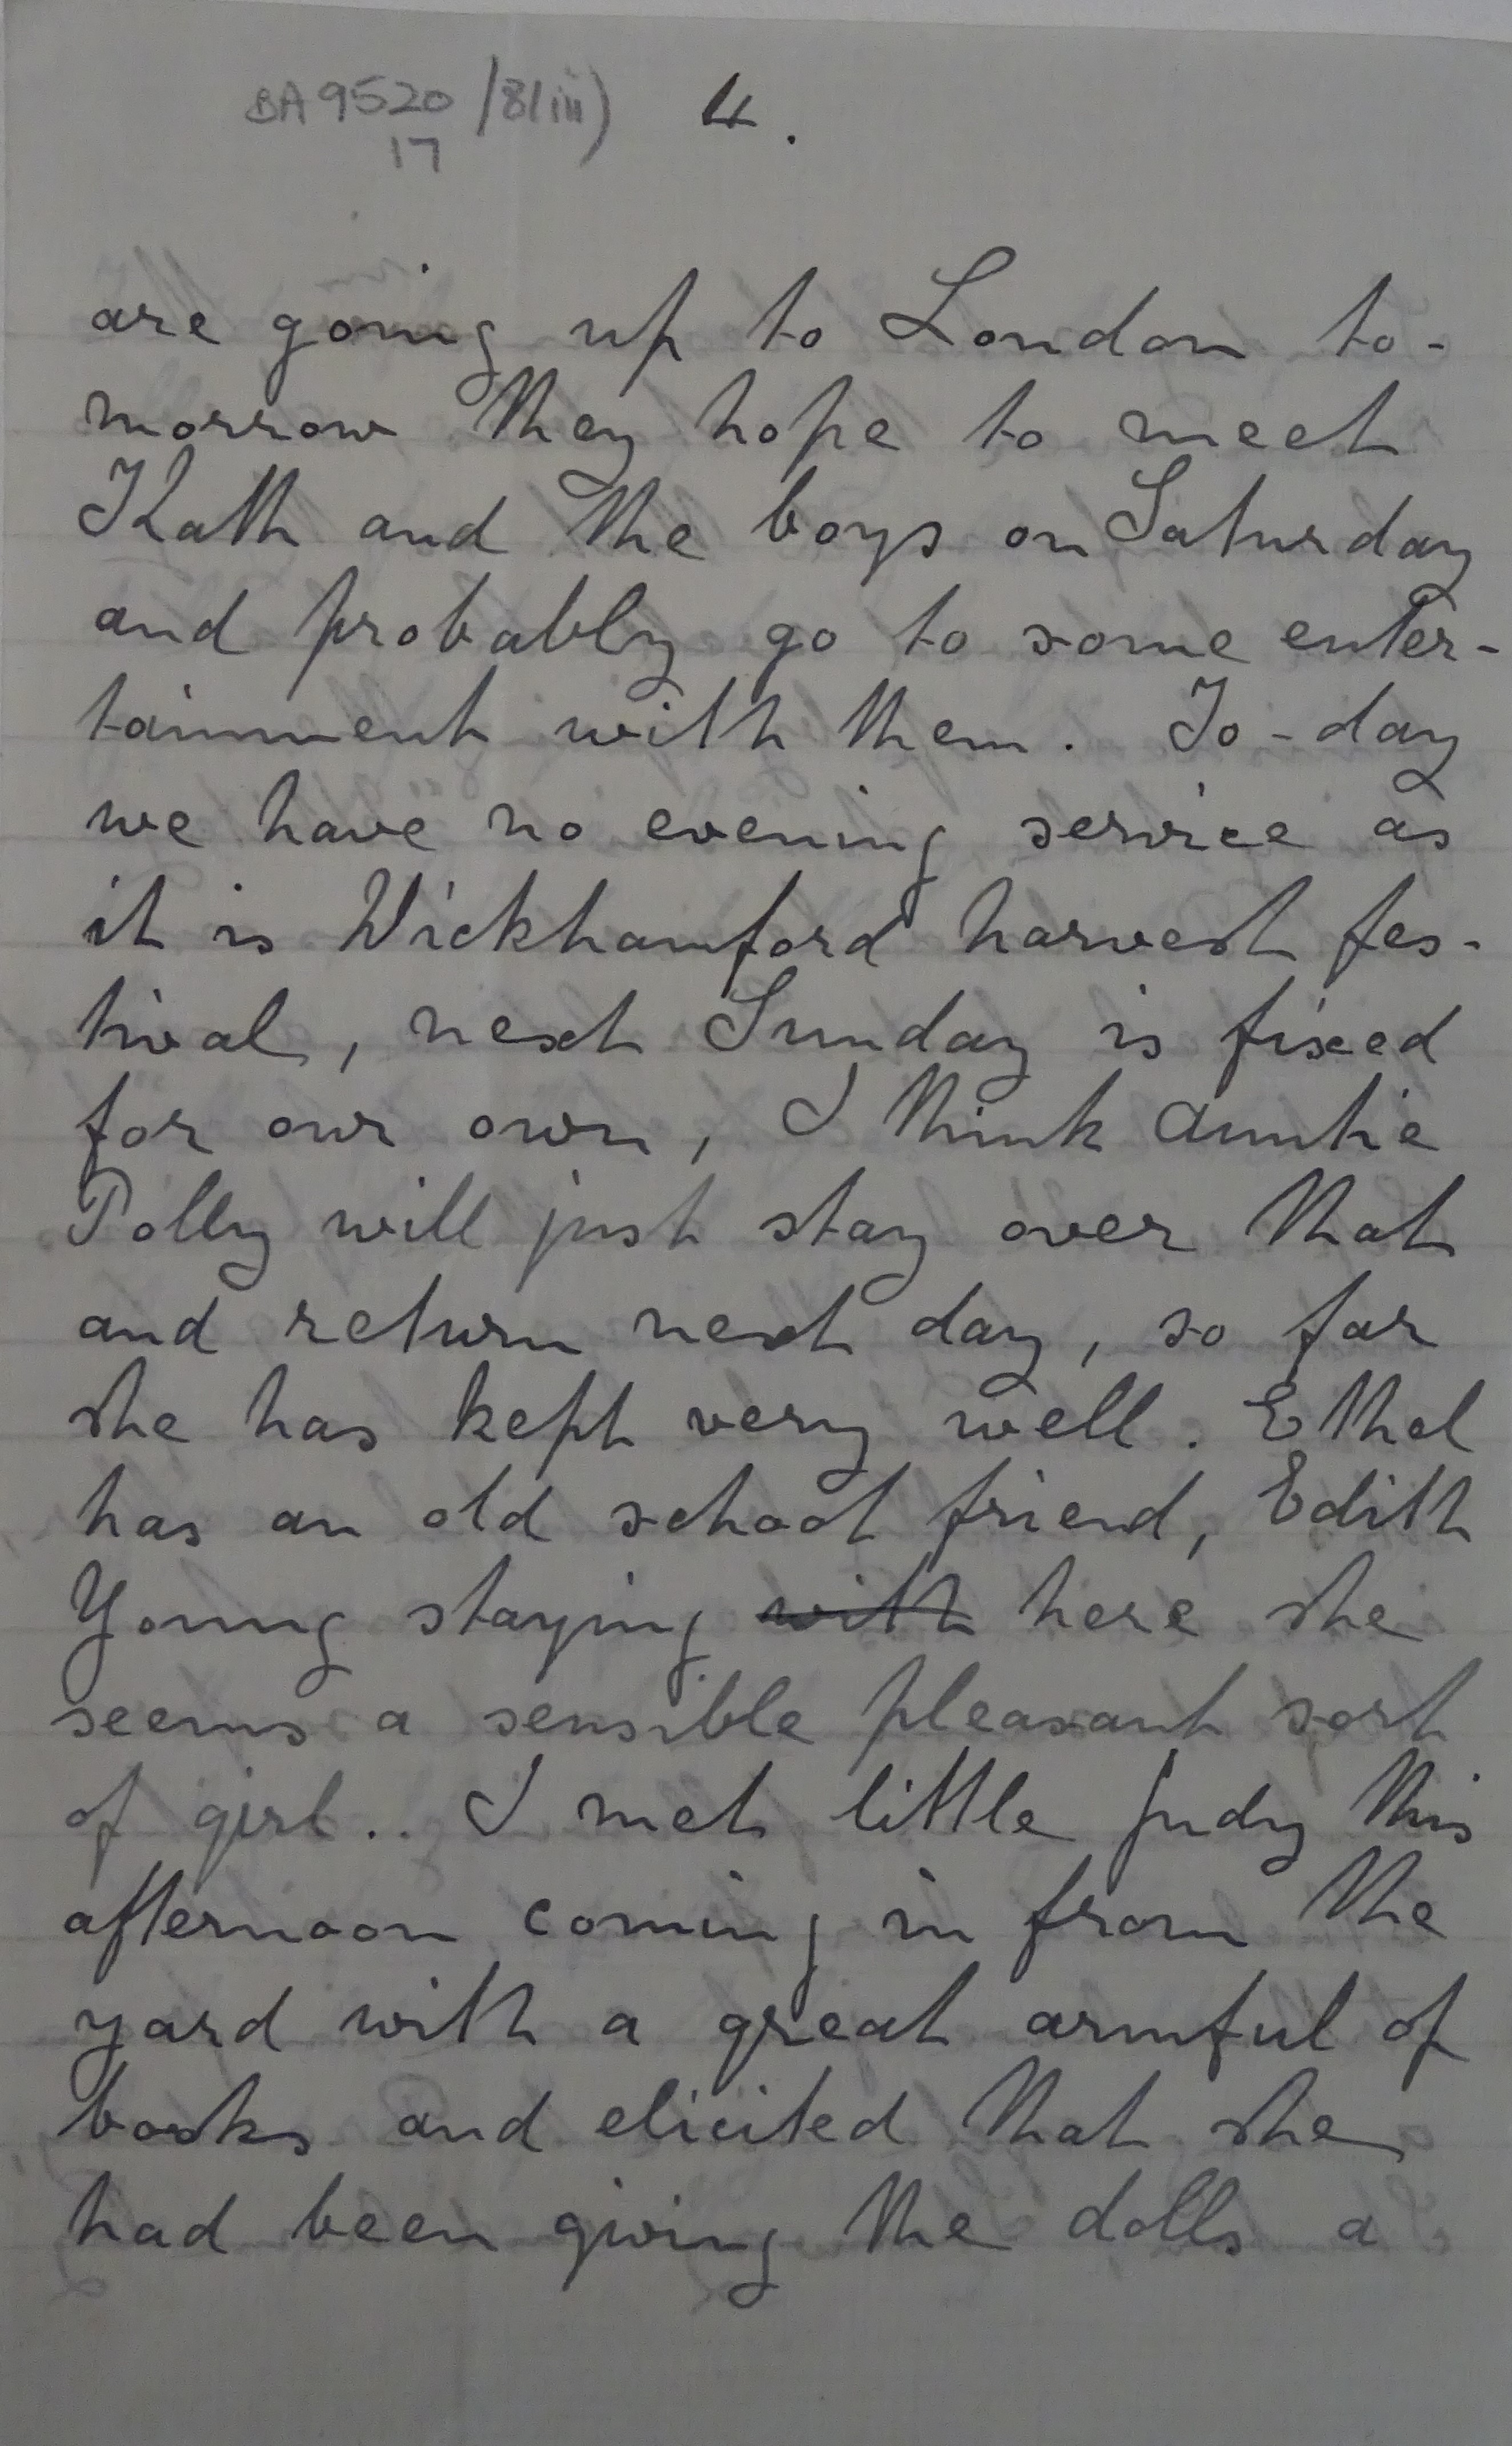 BA9520/8(iii) 4.
17
are going up to London to-
morrow they hope to meet
Kath and the boys on Saturday
and probably go to some enter-
tainment with them. To-day
we have no evening service as
it is Wickhamford harvest fes-
tival, next Sunday is fixed
for our own, I think Auntie
Polly will just stay over that
and return next day, so far
she has kept very well. Ethel
has an old school friend, Edith
Young staying with here she
seems a sensible pleasant sort
of girl.. I met little Judy this
afternoon coming in from the
yard with a great armful of
books and elicited that she
had been giving the dolls a